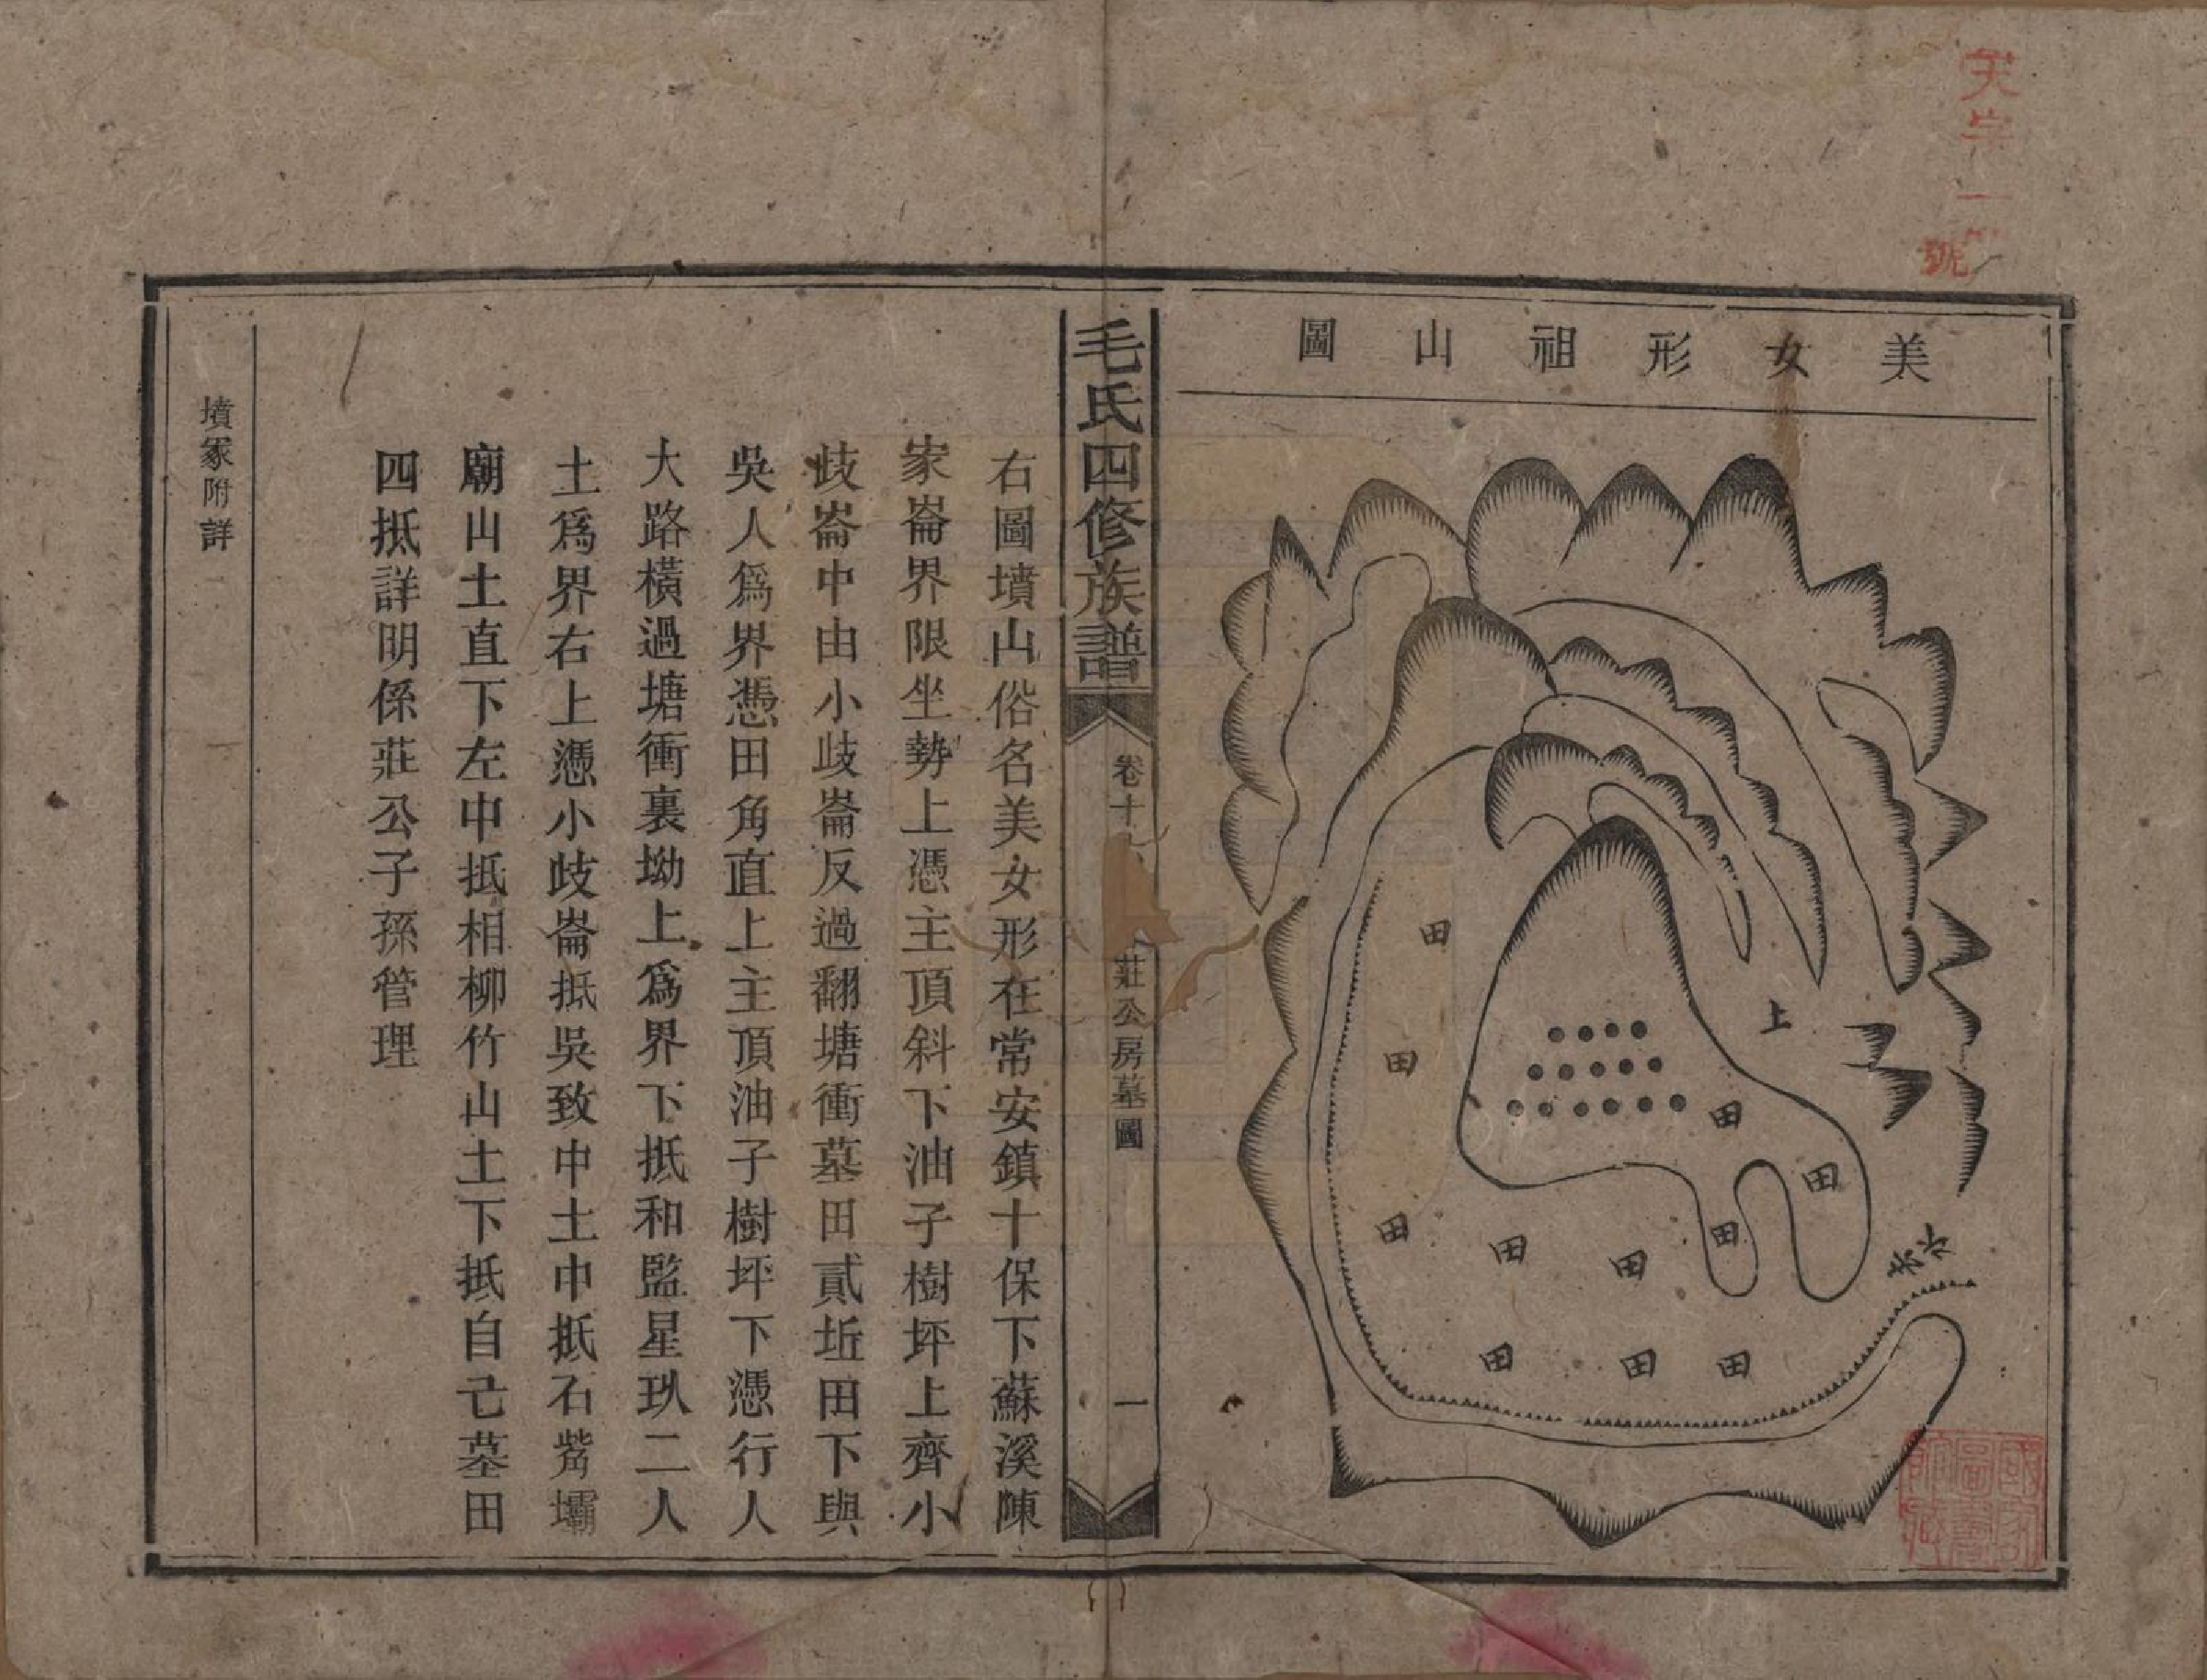 天字一號
美女形祖山圖
上
田
田
田
田
田
田
田
田
田
田
田
水
毛氏四修族譜
卷十
莊公房墓圖
一
右圖墳山俗名美女形在常安鎮十保下蘇溪陳
家崙界限坐勢上憑主頂斜下油子樹坪上齊小
歧崙中由小歧崙反過翻塘衝墓田貳坵田下與
吳人爲界憑田角直上主頂油子樹坪下憑行人
大路橫過塘衝裏坳上爲界下抵和監星玖二人
土爲界右上憑小歧崙抵吳致中土中抵石觜壩
廟山土直下左中抵相柳竹山土下抵自己墓田
四抵詳明係莊公子孫管理
墳冢附詳
國家圖書館藏